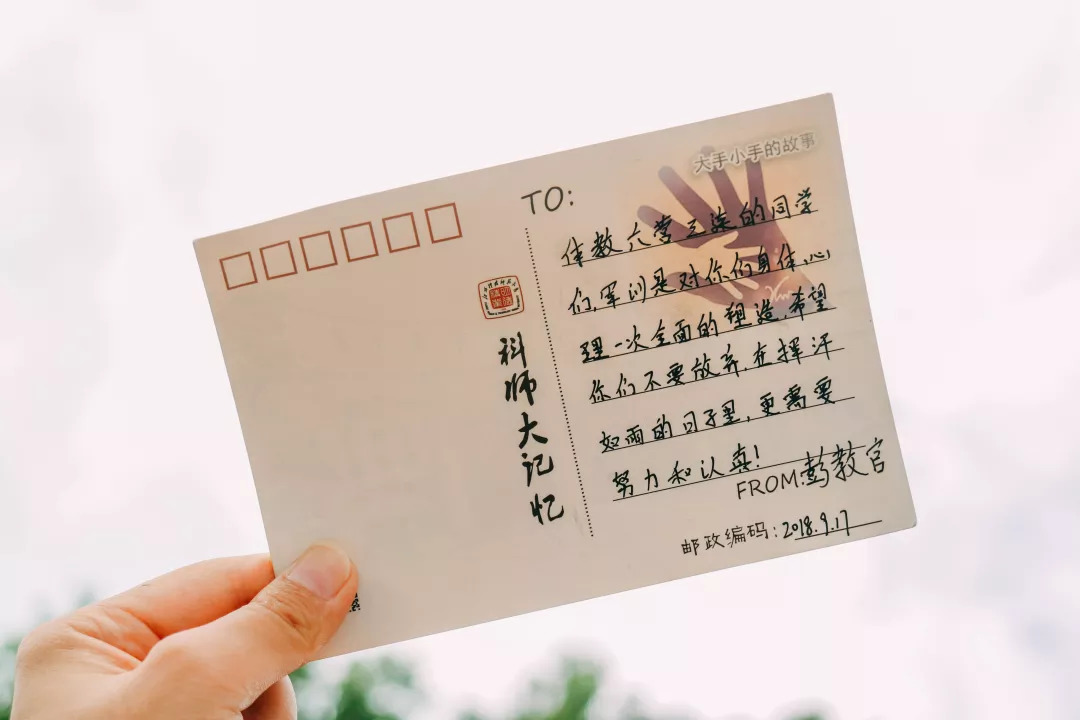 大手小手的故事
TO:
体教六营三连的同学
们,军训是对你们身体、心
理一次全面的塑造,希望
你们不要放弃,在挥汗
如雨的日子里,更需要
努力和认真!
FROM:彭教官
邮政编码:2018.9.17
科师大记忆